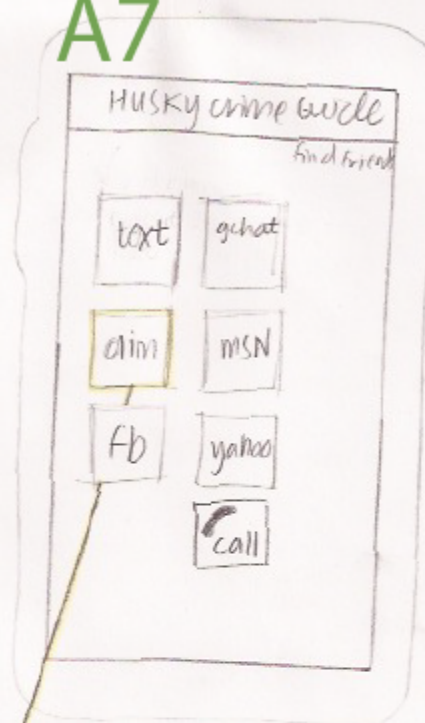 A7
HUSKY crime Guide
find friends
text gchat
aim MSN
fb yahoo
call